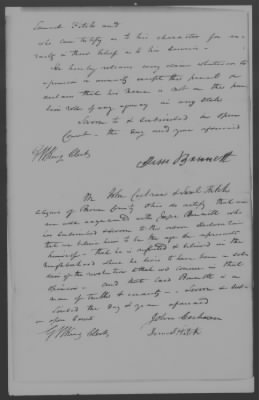 Samuel Fitch and
who can testify as to his character for ve-
racity & there belief as to his Service -
He hereby relinquishes every claim whatever to
a pension or annuity except this present &
declares that his name is not on the pen-
sion role of any agency in any State
Sworn to & Subscribed in Open
Court - the day and year aforesaid
G W King Clerk
Bennett
We John Cochran & Fitch
Citizens of Brown County Ohio do certify that we
are well acquainted with Bennett who
has Subscribed & Sworn to the above declaration
that we believe him to be the age he represents
himself - that he is reputed & believed in the
neighborhood where he lives to have been a sol-
dier of the revolution & that we concur in that
opinion - and that Said Bennett is a
man of truth & veracity - Sworn & Sub-
scribed the day & year aforesaid
in open Court
John Cochran
G W King Clerk
Fitch